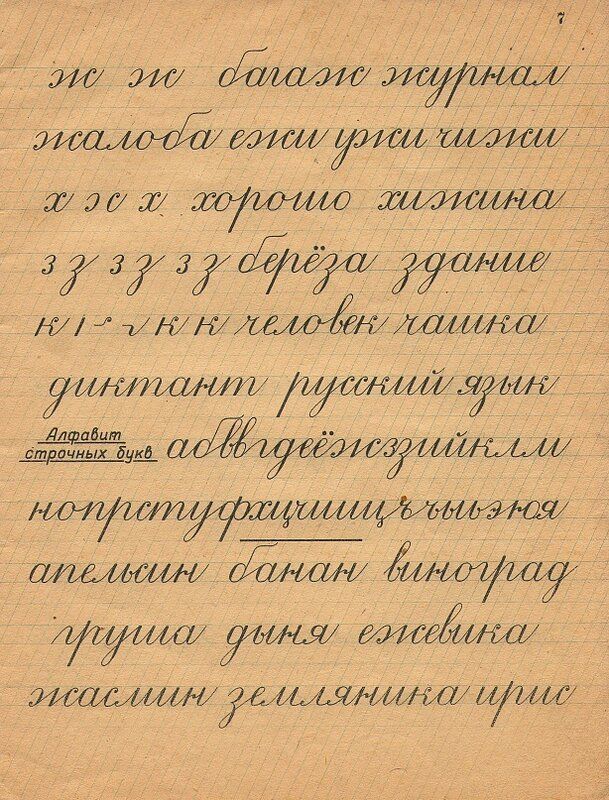 7
ж ж багаж журнал
жалоба ежи ужи чижи
х х х хорошо хижина
з з з з з з берёза здание
к к к человек чашка
диктант русский язык
Алфавит
строчных букв
абввгдеёжззийклм
нопрстуфхцчшщъъыьэюя
апельсин банан виноград
груша дыня ежевика
жасмин земляника ирис